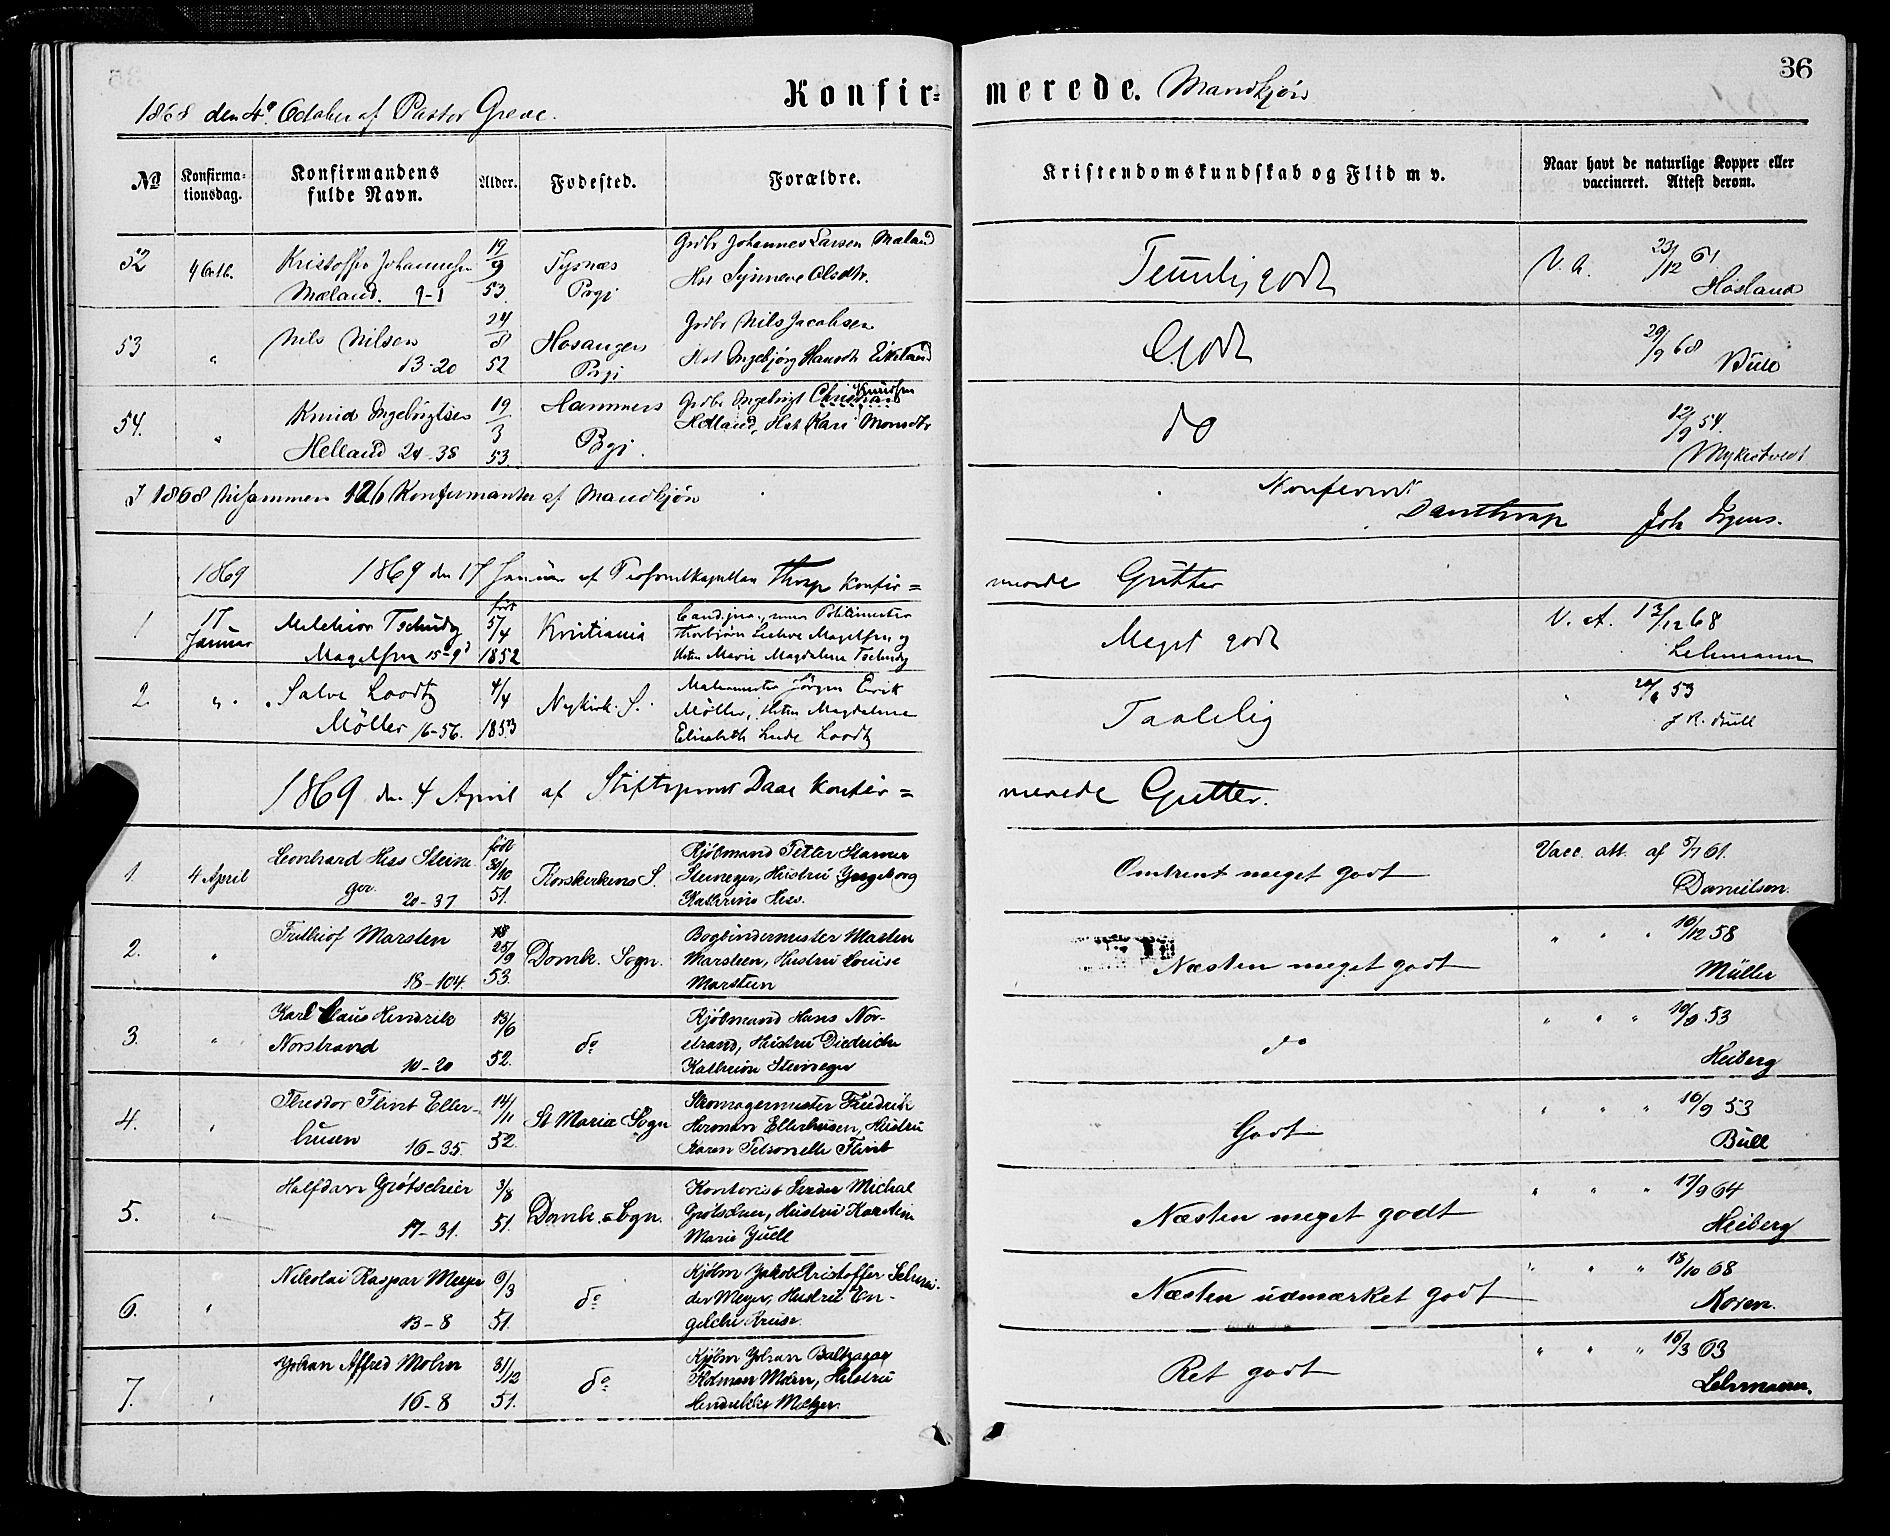 36
Konfir=
merede. Mandkjön
1868 den 4de October af Pastor Greve.
No
Konfirma-
tionsdag.
Konfirmandens
fulde Navn.
Alder.
Fødested.
Forældre.
Kristendomskundskab og Flid m v.
Naar havt de naturlige Kopper eller
vaccineret. Attest derom.
52
4 Octb.
Kristoffer Johannesen
Mæland. 9-1
19/9
53
Tysnæs
Prgj
Grdbr Johannes Larsen Mæland
Hst Synneve Olsdtr.
Temmelig godt
V. A. 23/12 61
Hosland
53
"
Nils Nilsen
13-20
52
Hosangers
Prgj
Grdbr Nils Jacobsen
Hst Ingebjørg Hansdtr Eikeland
Godt
29/9 68
Bull
54.
"
Knud Ingebrigtsen
Helland 24-38
19/3
53
Hammers
Prgj.
Grdbr Ingebrigt Christian Knudsen
Helland, Hst Kari Monsdtr
do
12/9 54.
Mykletvedt
I 1868 tilsammen 126 Konfirmanter af Mandkjön
Konfererer
Daasthrap
Joh Irgens.
1869
1869 den 17 Januar af Personelkapellan Thrap Konfir=
merede Gutter
1
17
Januar
Melchior Tschudy
Magelsen 15-9
født
5/4
1852
Kristiania
Cand. jur., Politimester
Thorbjørn Magelsen og
Hstru Marie Magdalene Tschudy
Meget godt
V. A. 13/12 68
Lehmann
2.
"
Salve Loodtz
Möller 16-56.
4/4
1853
Nykirk. S.
Jörgen Erik
Möller, Hstru Magdalene
Elisabeth Loodtz
Taalelig
53
J. R. Bull
1869 den 4 April af Stiftsprovst Daae Konfir=
merede Gutter.
1.
4 April
Leonhard Hess Steine
ger. 20-37
født
30/10
51.
Korskirkens S.
Kjøbmand Petter Stamer
Steineger, Hustru Yngeborg
Kathrine Hess.
Omtrent meget godt
Vacc. att. af 5/7 61.
Danielsen.
2.
"
Frithiof Marsten
18-104.
25/9
53.
Domk. Sogn.
Bogbindermester Marten
Marsteen, Hustru Louise
Marsteen
Næsten meget godt
" " " 10/12 58
Müller
3.
"
Karl Claus Hendrik
Norstrand
10-20
13/6
52.
do
Kjøbmand Hans Nor-
strand, Hustru Diedrikke
Kathrine Steineger
do
" " " 53
Heiberg
4.
"
Theodor Flint Eller-
husen 16-35.
14/11
52.
St Mariæ Sogn
Skomagermester Friedrik
Herman Ellerhusen, Hustru
Karen Petronelle Flint
Godt
" " " 16/9 53
Bull
5.
"
Halfdan Grøtscheir
17-31.
3/8
51.
Domk. Sogn.
Kontorist Peder Michal
Grøtscheir, Hustru Karoline
Marie Juell
Næsten meget godt
" " " 17/9 64
Heiberg
6.
"
Nikolai Kaspar Meyer
13-8
6/3
51.
do
Kjøbm Jakob Kristoffer Schrei-
der Meyer, Hustru En-
gelche Kruse.
Næsten udmærket godt
" " " 18/10 68
Koren.
7.
"
Johan Alfred Mohn
16-8
31/12
51.
do
Kjøbm Johan Baltzazar
Mohn, Hustru
Hendrikke Meltzer.
Ret godt
" " " 16/3 63
Lehmann.